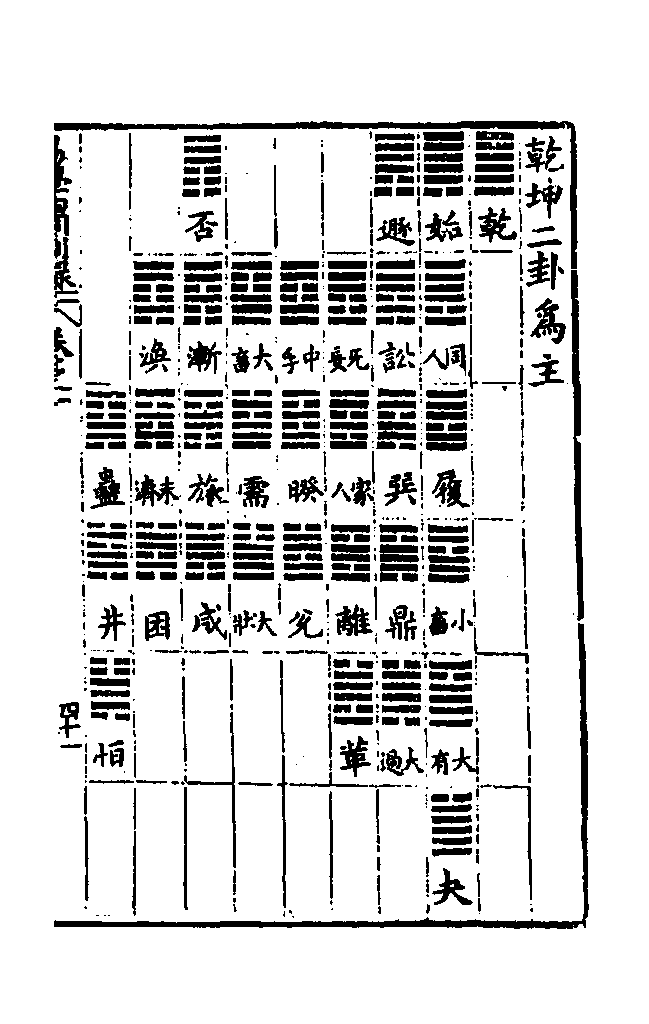 乾坤二卦為主
乾
姤
同人
履
小畜
大有
夬
遯
訟
巽
鼎
大過
无妄
家人
離
革
中孚
睽
兌
大畜
需
大壯
否
漸
旅
咸
渙
未濟
困
蠱
井
恒
四十一